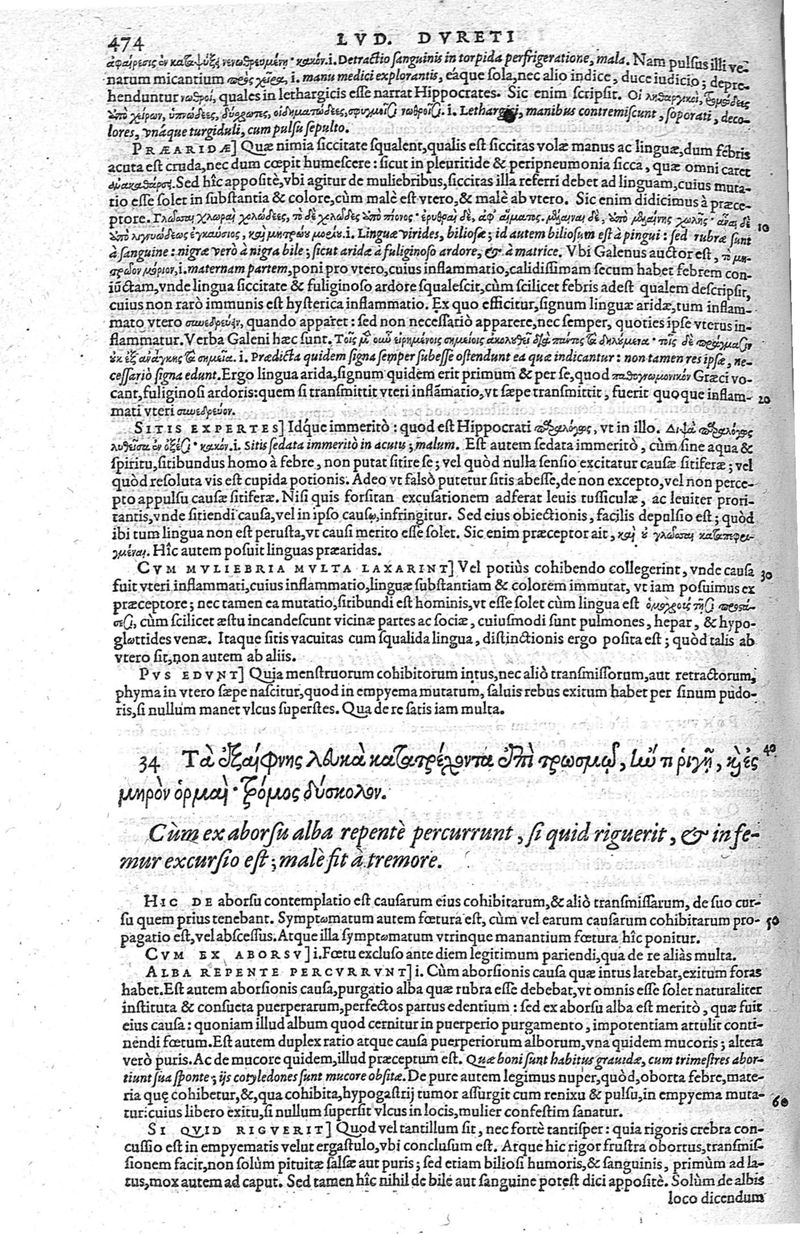 474 LVD. DVRETI
ἀφαίρεσις ἐν καταψύξει νενωθρευμένῃ· κακόν.i. Detractio sanguinis in torpida perfrigeratione, mala. Nam pulsus illi ve-
narum micantium πρὸς χεῖρα, i. manu medici explorantis, eaque sola, nec alio indice, duce iudicio; depre-
henduntur νωθροί, quales in lethargicis esse narrat Hippocrates. Sic enim scripsit. Οἱ ληθαργικοί, τρομώδεες
ὑπὸ χείρων, ὑπνώδεες, δύσχρωτες, οἰδηματώδεες, σφυγμοῖσι νωθροῖσι. i. Lethargici, manibus contremiscunt, soporati, deco-
lores, vnáque turgiduli, cum pulsu sepulto.
PRÆARIDÆ] Quæ nimia siccitate squalent, qualis est siccitas volæ manus ac linguæ, dum febris
acuta est cruda, nec dum cœpit humescere: sicut in pleuritide & peripneumonia sicca, quæ omni caret
ἀνακαθάρσει. Sed hîc appositè, vbi agitur de muliebribus, siccitas illa referri debet ad linguam, cuius muta-
tio esse solet in substantia & colore, cùm malè est vtero, & malè ab vtero. Sic enim didicimus à præce-
ptore. Γλῶσσαι χλωραὶ χολώδεες, τὸ δὲ χολῶδες ὑπὸ πίονος· ἐρυθραὶ δὲ, ἀφ' αἵματος. μέλαιναι δὲ, ὑπὸ μελαίνης χολῆς· αὖαι δὲ 10
ὑπὸ λιγνυώδεος ἐγκαύσιος, καὶ μητρῴου μορίου.i. Linguæ virides, biliosæ; id autem biliosum est à pingui: sed rubræ sunt
à sanguine: nigræ verò à nigra bile; sicut aridæ à fuliginoso ardore, & à matrice. Vbi Galenus auctor est, τὸ μη-
τρῷον μόριον,i. maternam partem, poni pro vtero, cuius inflammatio, calidissimam secum habet febrem con-
iūctam, vnde lingua siccitate & fuliginoso ardore squalescit, cùm scilicet febris adest qualem descripsit,
cuius non rarò immunis est hysterica inflammatio. Ex quo efficitur, signum linguæ aridæ, tum inflam-
mato vtero συνεδρεύειν, quando apparet: sed non necessariò apparere, nec semper, quoties ipse vterus in-
flammatur. Verba Galeni hæc sunt. Τοῖς μὲν οὖν εἰρημένοις σημείοις ἀκολουθεῖ διὰ παντὸς τὰ δηλούμενα· τοῖς δὲ πράγμασιν
οὐκ ἐξ ἀνάγκης τὰ σημεῖα. i. Prædicta quidem signa semper subesse ostendunt ea quæ indicantur: non tamen res ipsæ, ne-
cessariò signa edunt. Ergo lingua arida, signum quidem erit primum & per se, quod παθογνωμονικὸν Græci vo-
cant, fuliginosi ardoris: quem si transmittit vteri inflāmatio, vt sæpe transmittit, fuerit quoque inflam- 20
mati vteri συνεδρεῦον.
SITIS EXPERTES] Idque immeritò: quod est Hippocrati παραλόγως, vt in illo. Δίψα παραλόγως
λυθεῖσα ἐν ὀξέσι· κακόν. i. Sitis sedata immeritò in acutu; malum. Est autem sedata immeritò, cùm sine aqua &
spiritu, sitibundus homo à febre, non putat sitire se; vel quòd nulla sensio excitatur causæ sitiferæ; vel
quòd resoluta vis est cupida potionis. Adeo vt falsò putetur sitis abesse, de non excepto, vel non perce-
pto appulsu causæ sitiferæ. Nisi quis forsitan excusationem adferat leuis tussiculæ, ac leuiter prori-
tantis, vnde sitiendi causa, vel in ipso causo, infringitur. Sed eius obiectionis, facilis depulsio est; quòd
ibi tum lingua non est perusta, vt causi merito esse solet. Sic enim præceptor ait,
Hîc autem posuit linguas præaridas.
CVM MVLIEBRIA MVLTA LAXARINT] Vel potiùs cohibendo collegerint, vnde causa 30
fuit vteri inflammati, cuius inflammatio, linguæ substantiam & colorem immutat, vt iam posuimus ex
præceptore; nec tamen ea mutatio, sitibundi est hominis, vt esse solet cùm lingua est
cùm scilicet æstu incandescunt vicinæ partes ac sociæ, cuiusmodi sunt pulmones, hepar, & hypo-
glottides venæ. Itaque sitis vacuitas cum squalida lingua, distinctionis ergo posita est; quòd talis ab
vtero sit, non autem ab aliis.
PVS EDVNT] Quia menstruorum cohibitorum intus, nec aliò transmissorum, aut retractorum,
phyma in vtero sæpe nascitur, quod in empyema mutatum, saluis rebus exitum habet per sinum pudo-
ris, si nullum manet vlcus superstes. Qua de re satis iam multa.
34 Τὰ ἐξαίφνης λευκὰ κατατρέχοντα ἐπὶ τρωσμῷ, ἤν τι ῥιγῇ, καὶ ἐς 40
μηρὸν ὁρμᾷ· τρόμος δύσκολον.
Cùm ex aborsu alba repentè percurrunt, si quid riguerit, & in fe-
mur excursio est; malè fit à tremore.
HIC DE aborsu contemplatio est causarum eius cohibitarum, & aliò transmissarum, de suo cur-
su quem prius tenebant. Symptωmatum autem fœtura est, cùm vel earum causarum cohibitarum pro- 50
pagatio est, vel abscessus. Atque illa symptωmatum vtrinque manantium fœtura hîc ponitur.
CVM EX ABORSV] i. Fœtu excluso ante diem legitimum pariendi, qua de re aliàs multa.
ALBA REPENTE PERCVRRVNT] i. Cùm aborsionis causa quæ intus latebat, exitum foras
habet. Est autem aborsionis causa, purgatio alba quæ rubra esse debebat, vt omnis esse solet naturaliter
instituta & consueta puerperarum, perfectos partus edentium: sed ex aborsu alba est meritò, quæ fuit
eius causa: quoniam illud album quod cernitur in puerperio purgamento, impotentiam attulit conti-
nendi fœtum. Est autem duplex ratio atque causa puerperiorum alborum, vna quidem mucoris; altera
verò puris. Ac de mucore quidem, illud præceptum est. Quæ boni sunt habitus grauidæ, cum trimestres abor-
tiunt sua sponte; ijs cotyledones sunt mucore obsitæ. De pure autem legimus nuper, quòd, oborta febre, mate-
ria quę cohibetur, &, qua cohibita, hypogastrij tumor assurgit cum renixu & pulsu, in empyema muta- 60
tur: cuius libero exitu, si nullum supersit vlcus in locis, mulier confestim sanatur.
SI QVID RIGVERIT] Quod vel tantillum sit, nec fortè tantisper: quia rigoris crebra con-
cussio est in empyematis velut ergastulo, vbi conclusum est. Atque hic rigor frustra obortus, transmis-
sionem facit, non solùm pituitæ salsæ aut puris; sed etiam biliosi humoris, & sanguinis, primùm ad la-
tus, mox autem ad caput. Sed tamen hîc nihil de bile aut sanguine potest dici appositè. Solùm de albis
loco dicendum